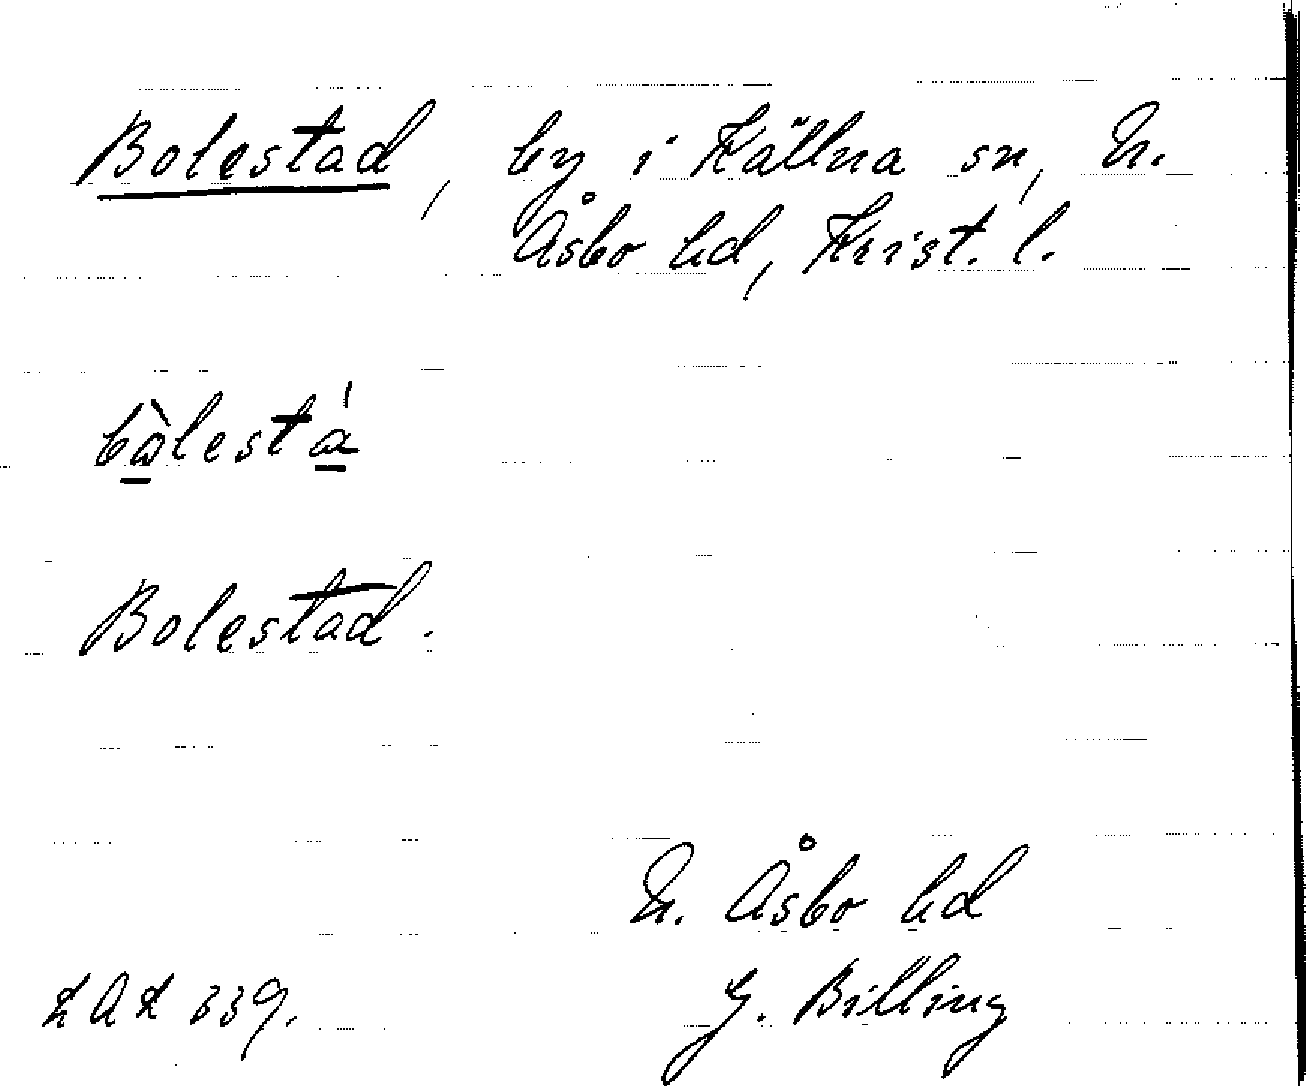 Bolestad, by i Källna sn, N.
Åsbo hd, Krist. l.
bòlestá
Bolestad.
N. Åsbo hd
LAL 339. G. Billing